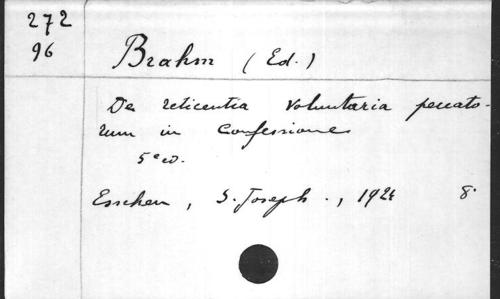 272
96
Brahm (Ed.)
De reticentia voluntaria peccato-
rum in Confessione
5e ed.
Esschen, S. Joseph., 1921 8°